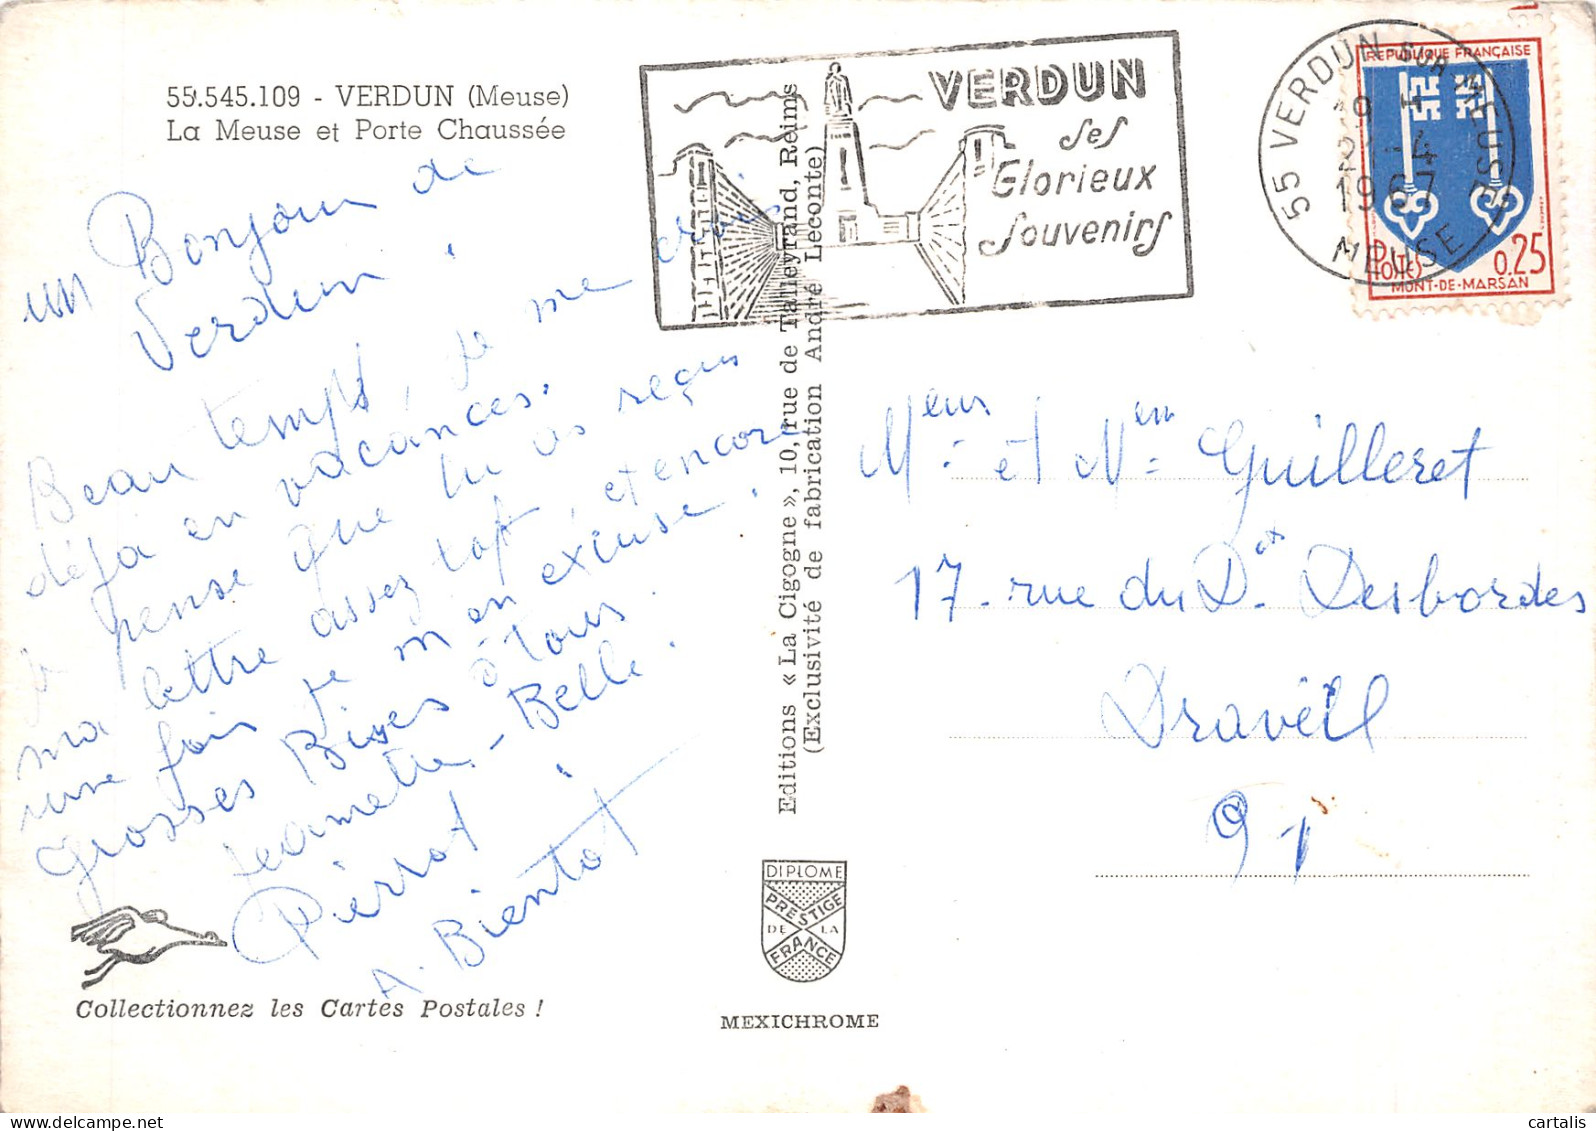 55.545.109 - VERDUN (Meuse)
La Meuse et Porte Chaussée
un Bonjour de
Verdun.
Beau temps, je me crois
déjà en vacances.
je pense que tu as reçus
ma lettre assez tot, et encore
une fois je m'en excuse.
grosses Bises à tous.
Jeannette - Belle.
Pierrot.
A. Bientôt
Collectionnez les Cartes Postales !
Editions « La Cigogne », 10, rue de Talleyrand, Reims
(Exclusivité de fabrication André Leconte)
DIPLOME
PRESTIGE
DE LA
FRANCE
MEXICHROME
VERDUN
Ses
Glorieux
Souvenirs
55 VERDUN SUR MEUSE
19 H
21-4
1967
MEUSE
REPUBLIQUE FRANÇAISE
POSTES 0,25
MONT-DE-MARSAN
Meur et Mem Guilleret
17. rue du D. Desbordes
Draveil
91
cartalis • delcampe.net